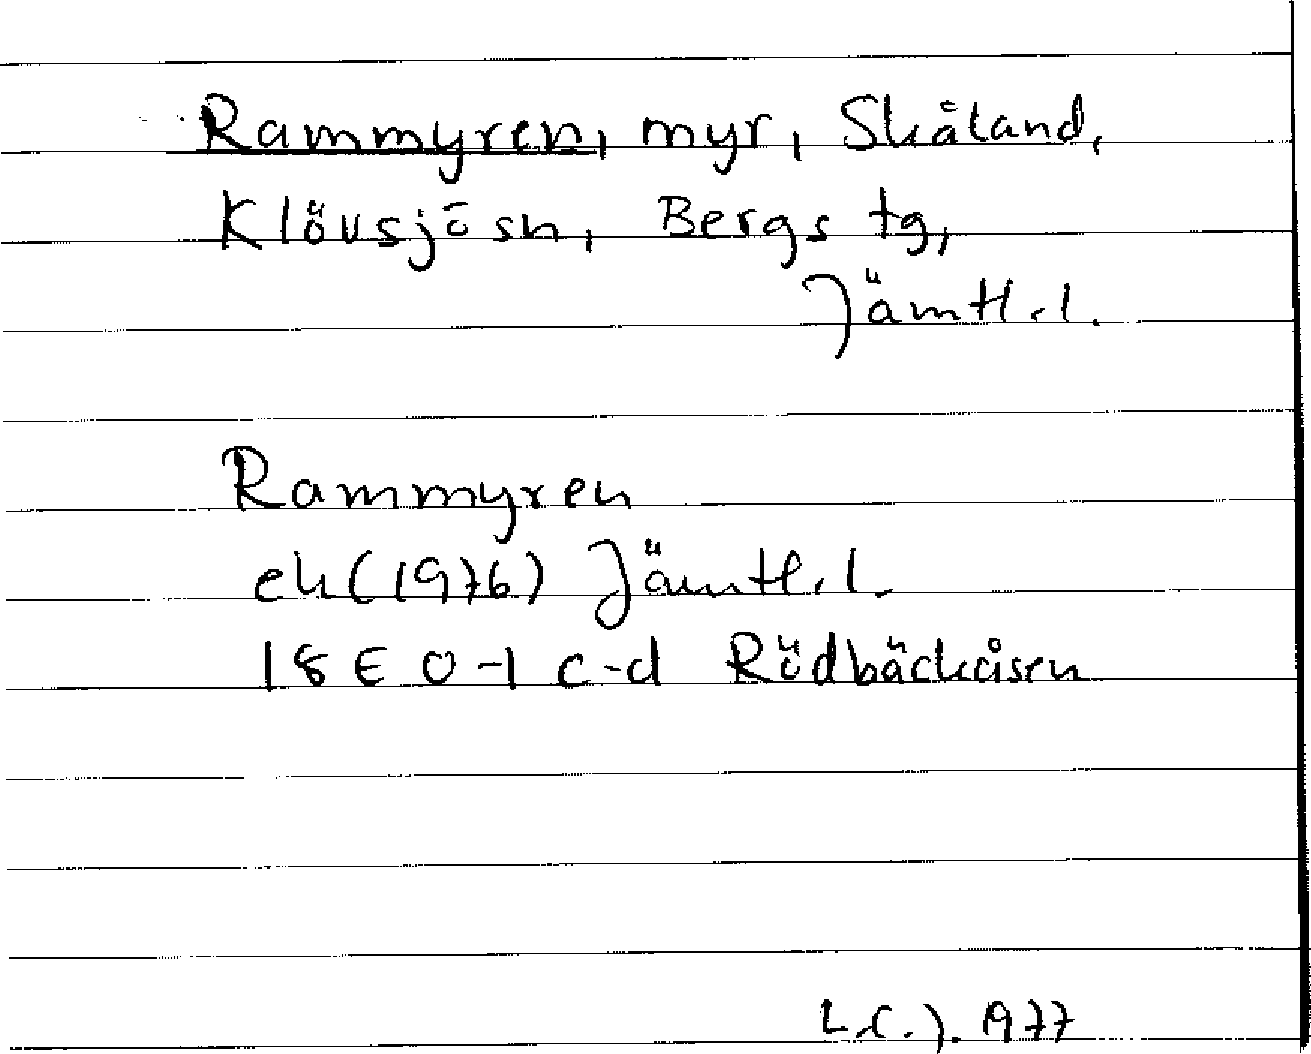 Rammyren, myr, Skåland,
Klövsjö sn, Bergs tg,
Jämtl.l.
Rammyren
ek (1976) Jämtl.l.
18 E 0-1 c-d Rödbäckåsen
L.C.J. 1977